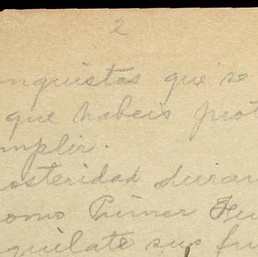 2
nquistas que se
que habeis prot
mplir.
osteridad duran
como Primer Fu
quilate sus fru